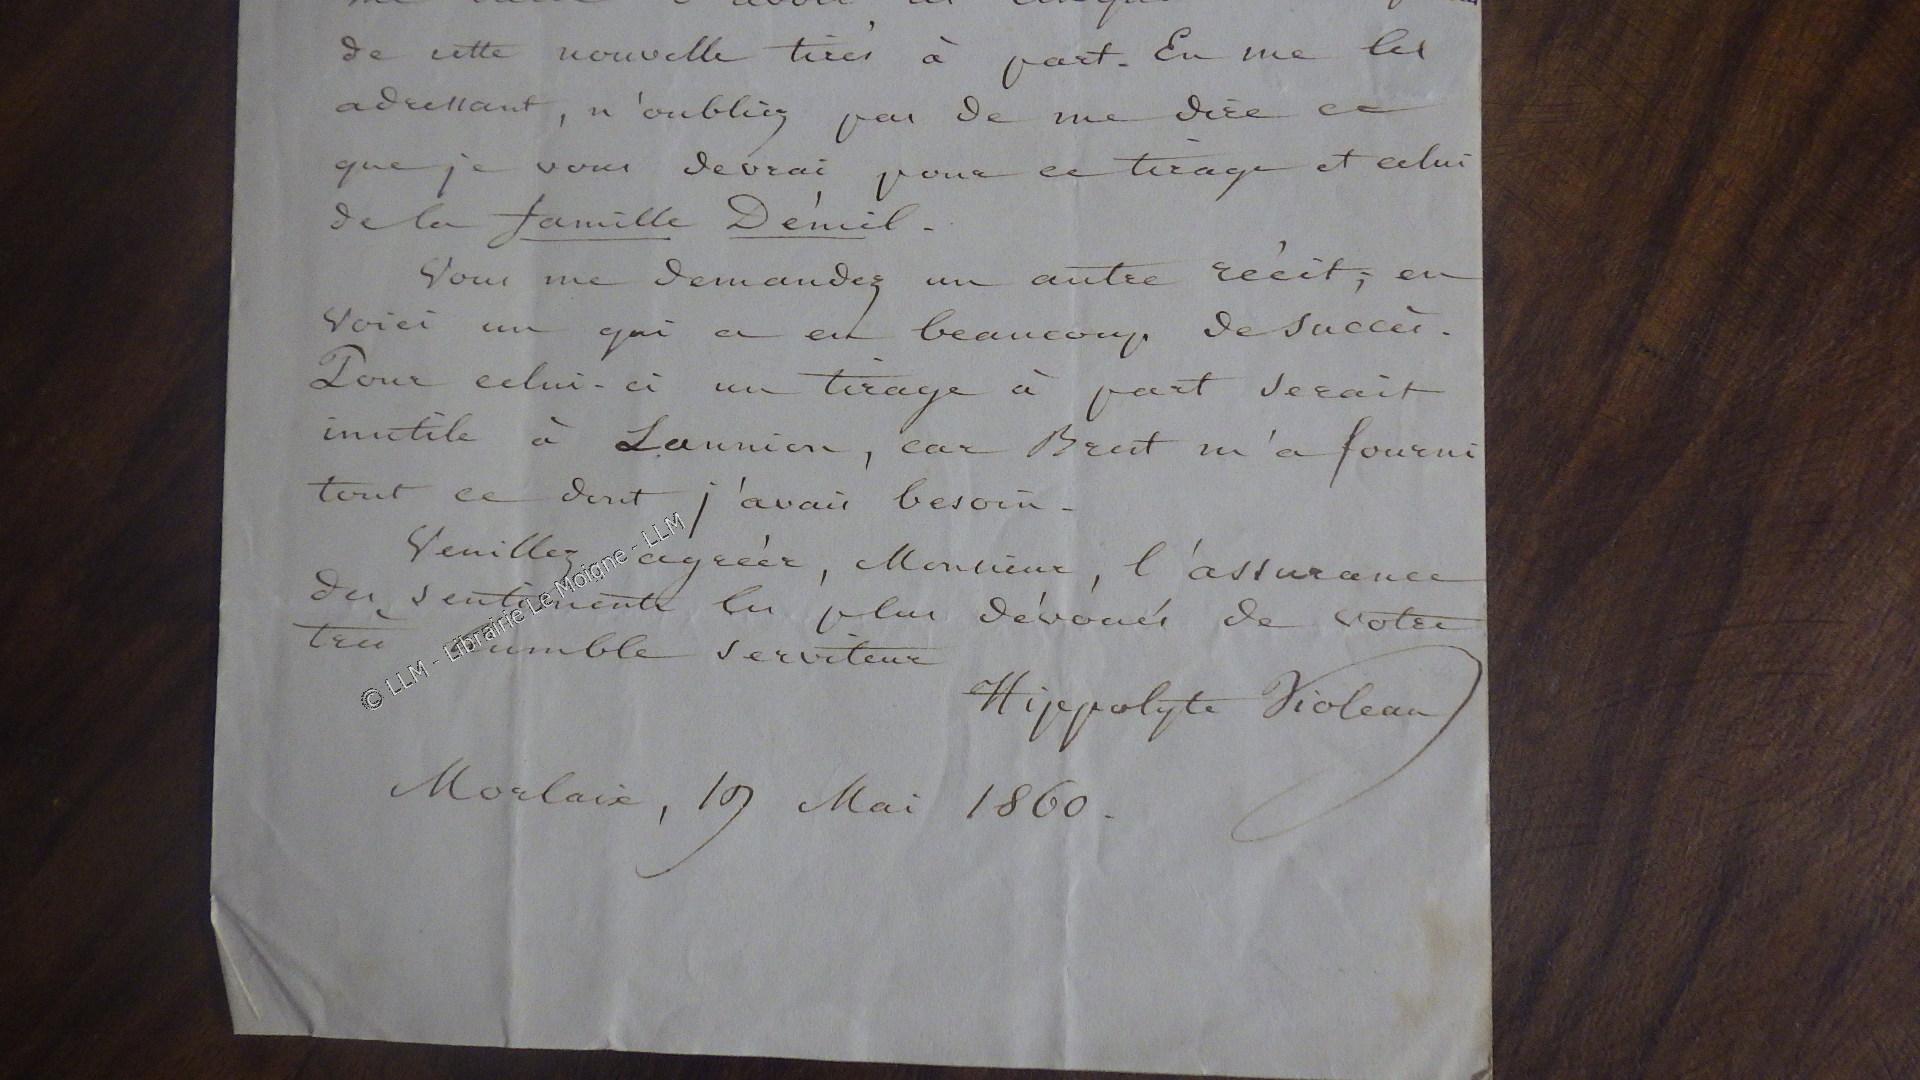 de cette nouvelle tirés à part. En me les
adressant, n'oubliez pas de me dire ce
que je vous devrai pour ce tirage et celui
de la famille Démil.
Vous me demandez un autre récit; en
voici un qui a eu beaucoup de succès.
Pour celui-ci un tirage à part serait
inutile à Lannion, car Brest m'a fourni
tout ce dont j'avais besoin.
Veuillez agréer, Monsieur, l'assurance
des sentiments les plus dévoués de votre
très humble serviteur
Hippolyte Violeau
Morlaix, 19 Mai 1860.
© LLM - Librairie Le Moigne - LLM